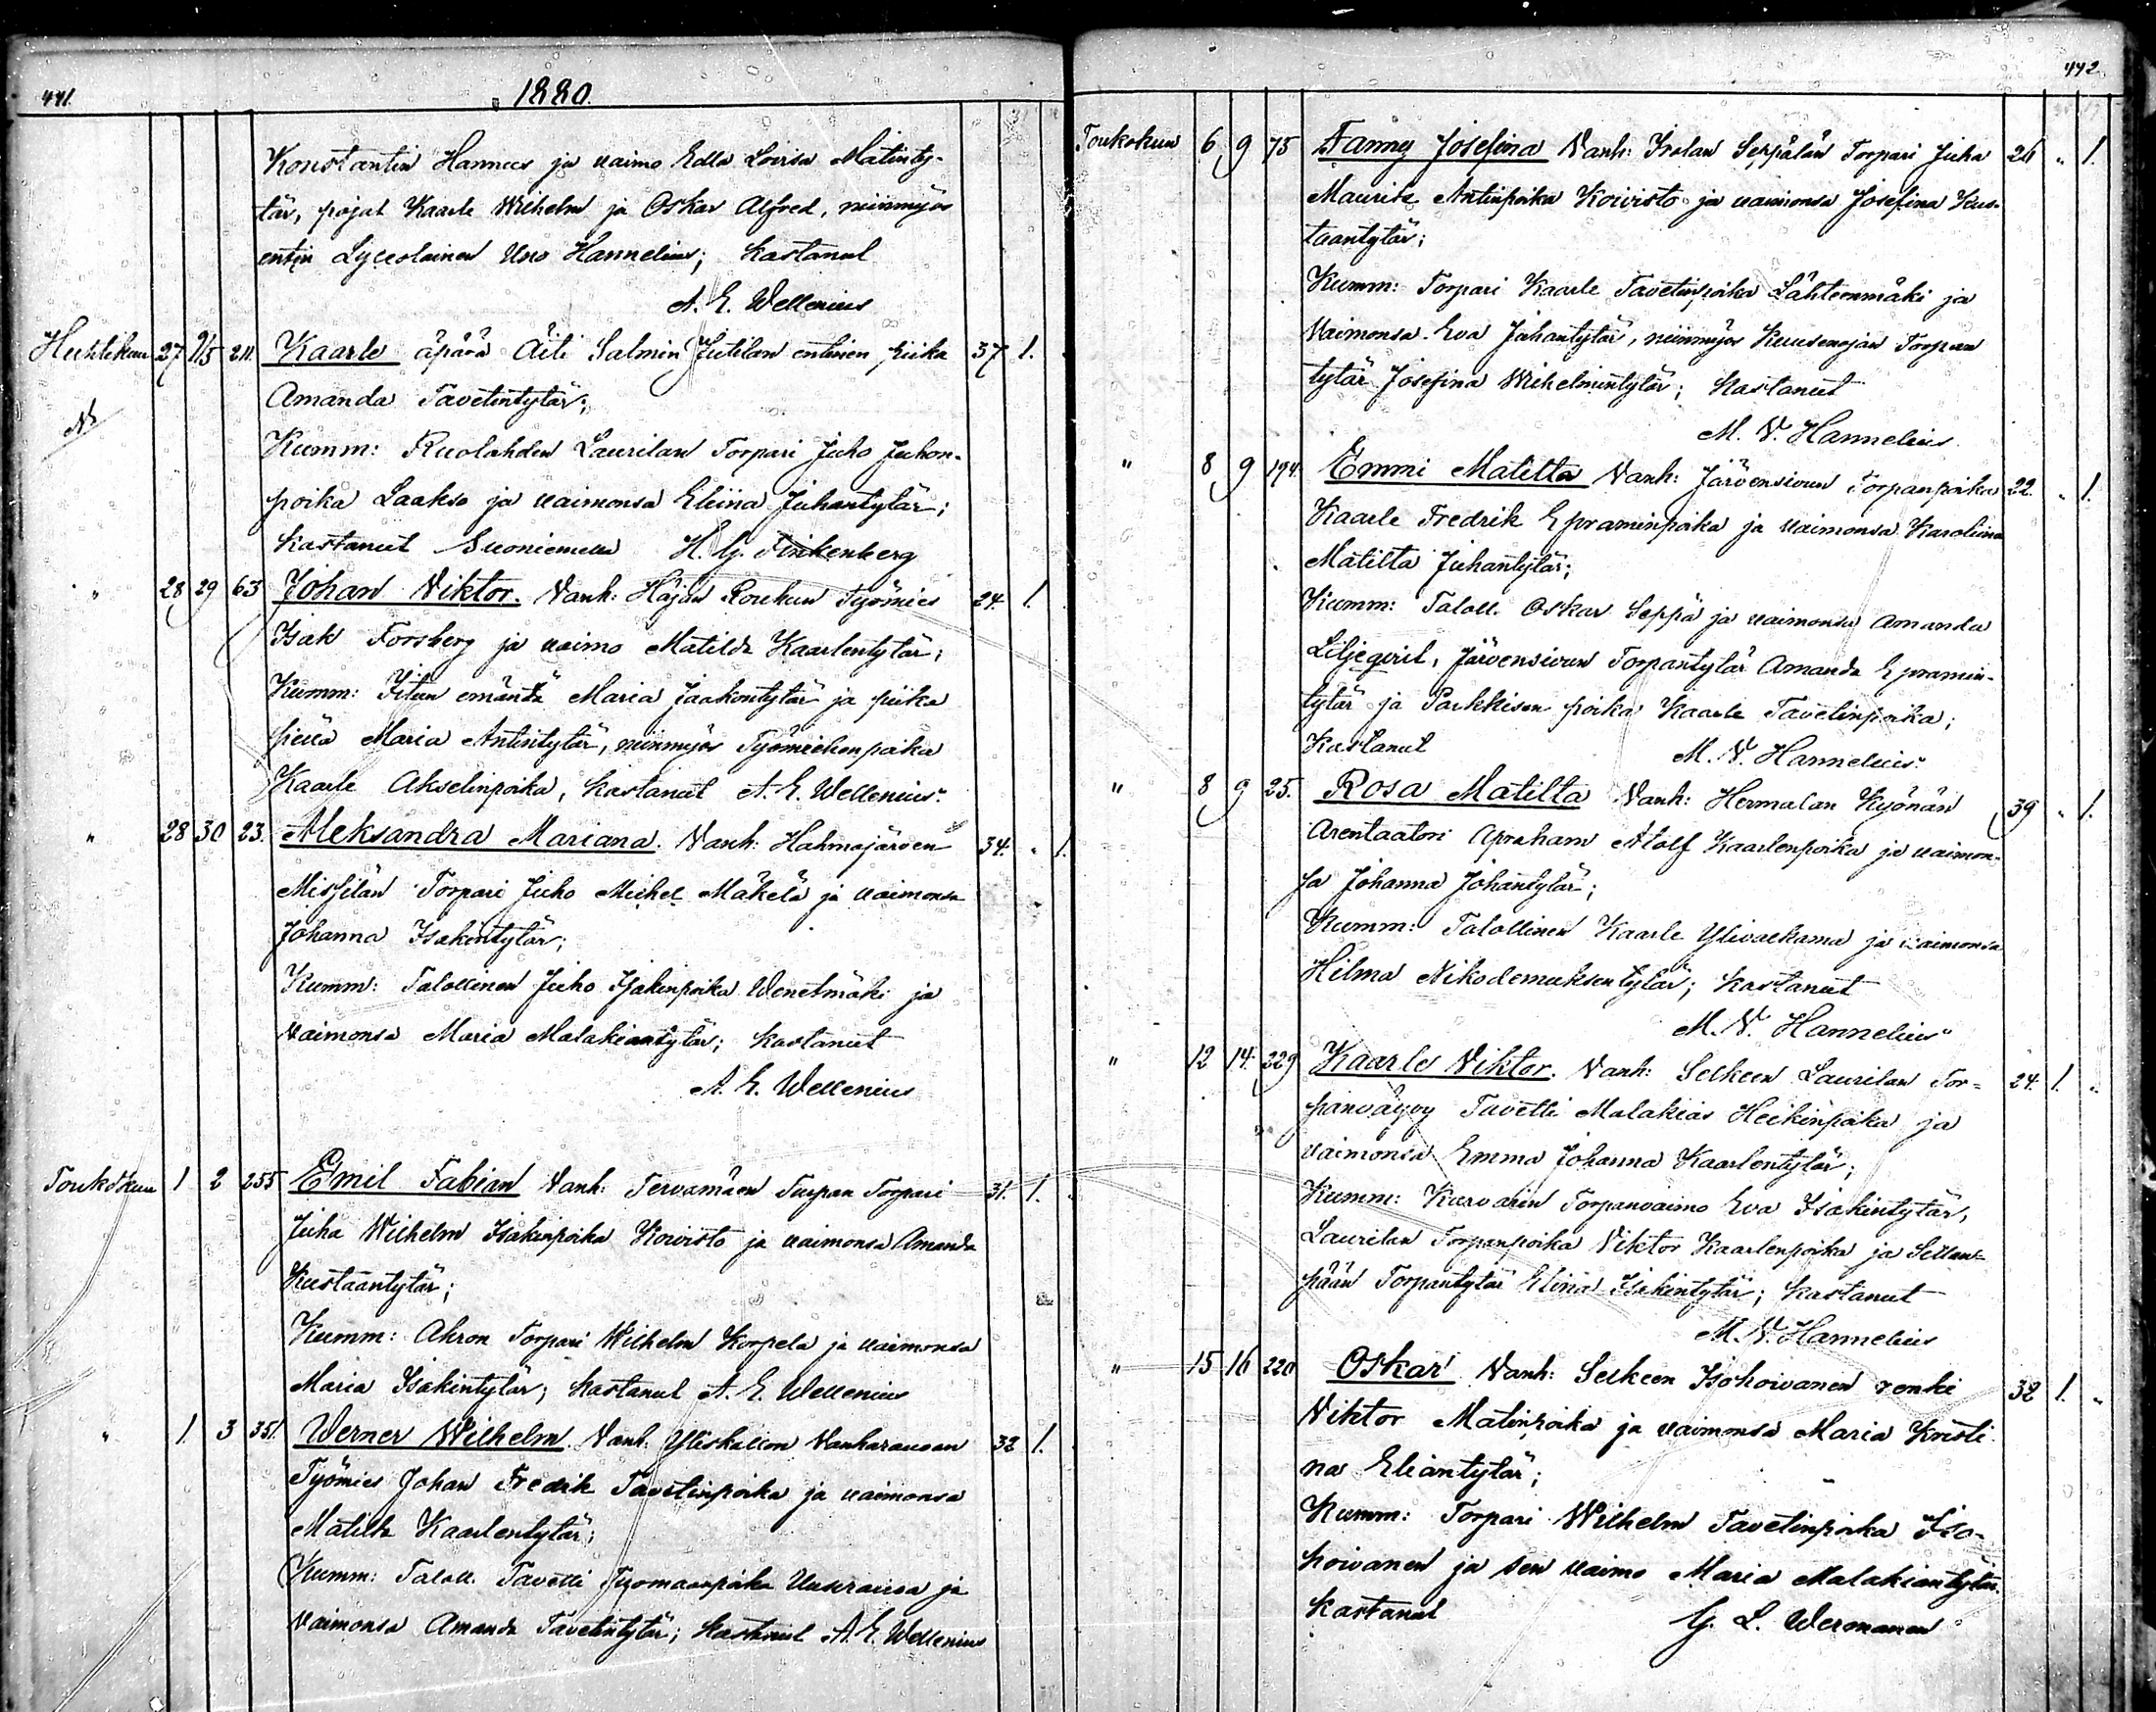 441.
1880.
Konstantin Hannus ja vaimo Edla Lovisa Matinty-
tär, pojat Kaarle Wilhelm ja Oskar Alfred, niinmyös
entin Lyceolainen Uno Hannelius; Kastanut
A. E. Wellenius
Huhtikuu 27 9/5 211. Kaarle äpärä Äiti Salmin Jutilan entinen piika 37 1.
Amanda Tavetintytär;
Kumm: Ruolahden Laurilan Torpari Juho Juhon-
poika Laakso ja vaimonsa Eliina Juhantytär;
Kastanut Suoniemellä H. G. Finkenberg
" 28 29 63 Johan Viktor. Vanh: Hajan Roukun Työmies 24. 1.
Isak Forsberg ja vaimo Matilda Kaarlentytär;
Kumm: emäntä Maria Jaakontytär ja piika
Maria Antintytär, niinmyös Työmiehenpoika
Kaarle Akselinpoika, Kastanut A. E. Wellenius.
" 28 30 23. Aleksandra Mariana. Vanh: Hahmajärven 34. " 1.
Missilän Torpari Juho Michel Mäkelä ja vaimonsa
Johanna Isakintytär;
Kumm: Talollinen Juho Isakinpoika Wenetmäki ja
Vaimonsa Maria Malakiantytär; Kastanut
A. E. Wellenius
Toukokuu 1 2 255 Emil Fabian Vanh: Tervamäen Turpan Torpari 31. 1.
Juha Wilhelm Isakinpoika Koivisto ja vaimonsa Amanda
Kustaantytär;
Kumm: Ahron Torpari Wilhelm Korpela ja vaimonsa
Maria Isakintytär; Kastanut A. E. Wellenius
" 1. 3 351. Werner Wilhelm. Vanh: Yliskallion Vanharausan 32 1.
Työmies Johan Fredrik Tavetinpoika ja vaimonsa
Matilda Kaarlentytär;
Kumm: Taloll. Tavetti Tuomaanpoika Uusirausa ja
Vaimonsa Amanda Tavetintytär; Kastanut A. E. Wellenius
442.
Toukokuu 6 9 75 Fanny Josefina Vanh: Isolan Seppälän Torpari Juha 26 " 1.
Mauritz Antinpoika Koivisto ja vaimonsa Josefina Kus-
taantytär;
Kumm: Torpari Kaarle Tavetinpoika Lähteenmäki ja
Vaimonsa Eva Juhantytär, niinmyös Kuusenojan Torpan
tytär Josefina Wilhelmintytär; Kastanut
M. V. Hannelius
" 8 9 194. Emmi Matilta Vanh: Järvensivun Torpanpoika 22. " 1.
Kaarle Fredrik Epraminpoika ja vaimonsa Karoliina
Matilta Juhantytär;
Kumm: Taloll. Oskar Seppä ja vaimonsa Amanda
Liljeqvist, Järvensivun Torpantytär Amanda Epramin-
tytär ja Parkkisen poika Kaarle Tavetinpoika;
Kastanut M. V. Hannelius.
" 8 9 25. Rosa Matilta Vanh: Hermalan Kyönän 39 " 1.
Arentaatori Apraham Atolf Kaarlenpoika ja vaimon-
sa Johanna Johantytär;
Kumm: Talollinen Kaarle Ylivaekama ja vaimonsa
Hilma Nikodemuksentytär; Kastanut
M. V. Hannelius
" 12 14. 229 Kaarle Viktor. Vanh: Selkeen Laurilan Tor- 24. 1. "
panvävy Tavetti Malakias Heikinpoika ja
vaimonsa Emma Johanna Kaarlentytär;
Kumm: Karvarin Torpanvaimo Eva Isakintytär,
Laurilan Torpanpoika Viktor Kaarlenpoika ja Sillan-
pään Torpantytär Elina Isakintytär; Kastanut
M. V. Hannelius
" 15 16 220 Oskar. Vanh: Selkeen Isohoivanen renki 32 1. "
Viktor Matinpoika ja vaimonsa Maria Kristi-
na Eliantytär;
Kumm: Torpari Wilhelm Tavetinpoika Iso-
hoivanen ja sen vaimo Maria Malakiantytär.
Kastanut G. L. Wermanen